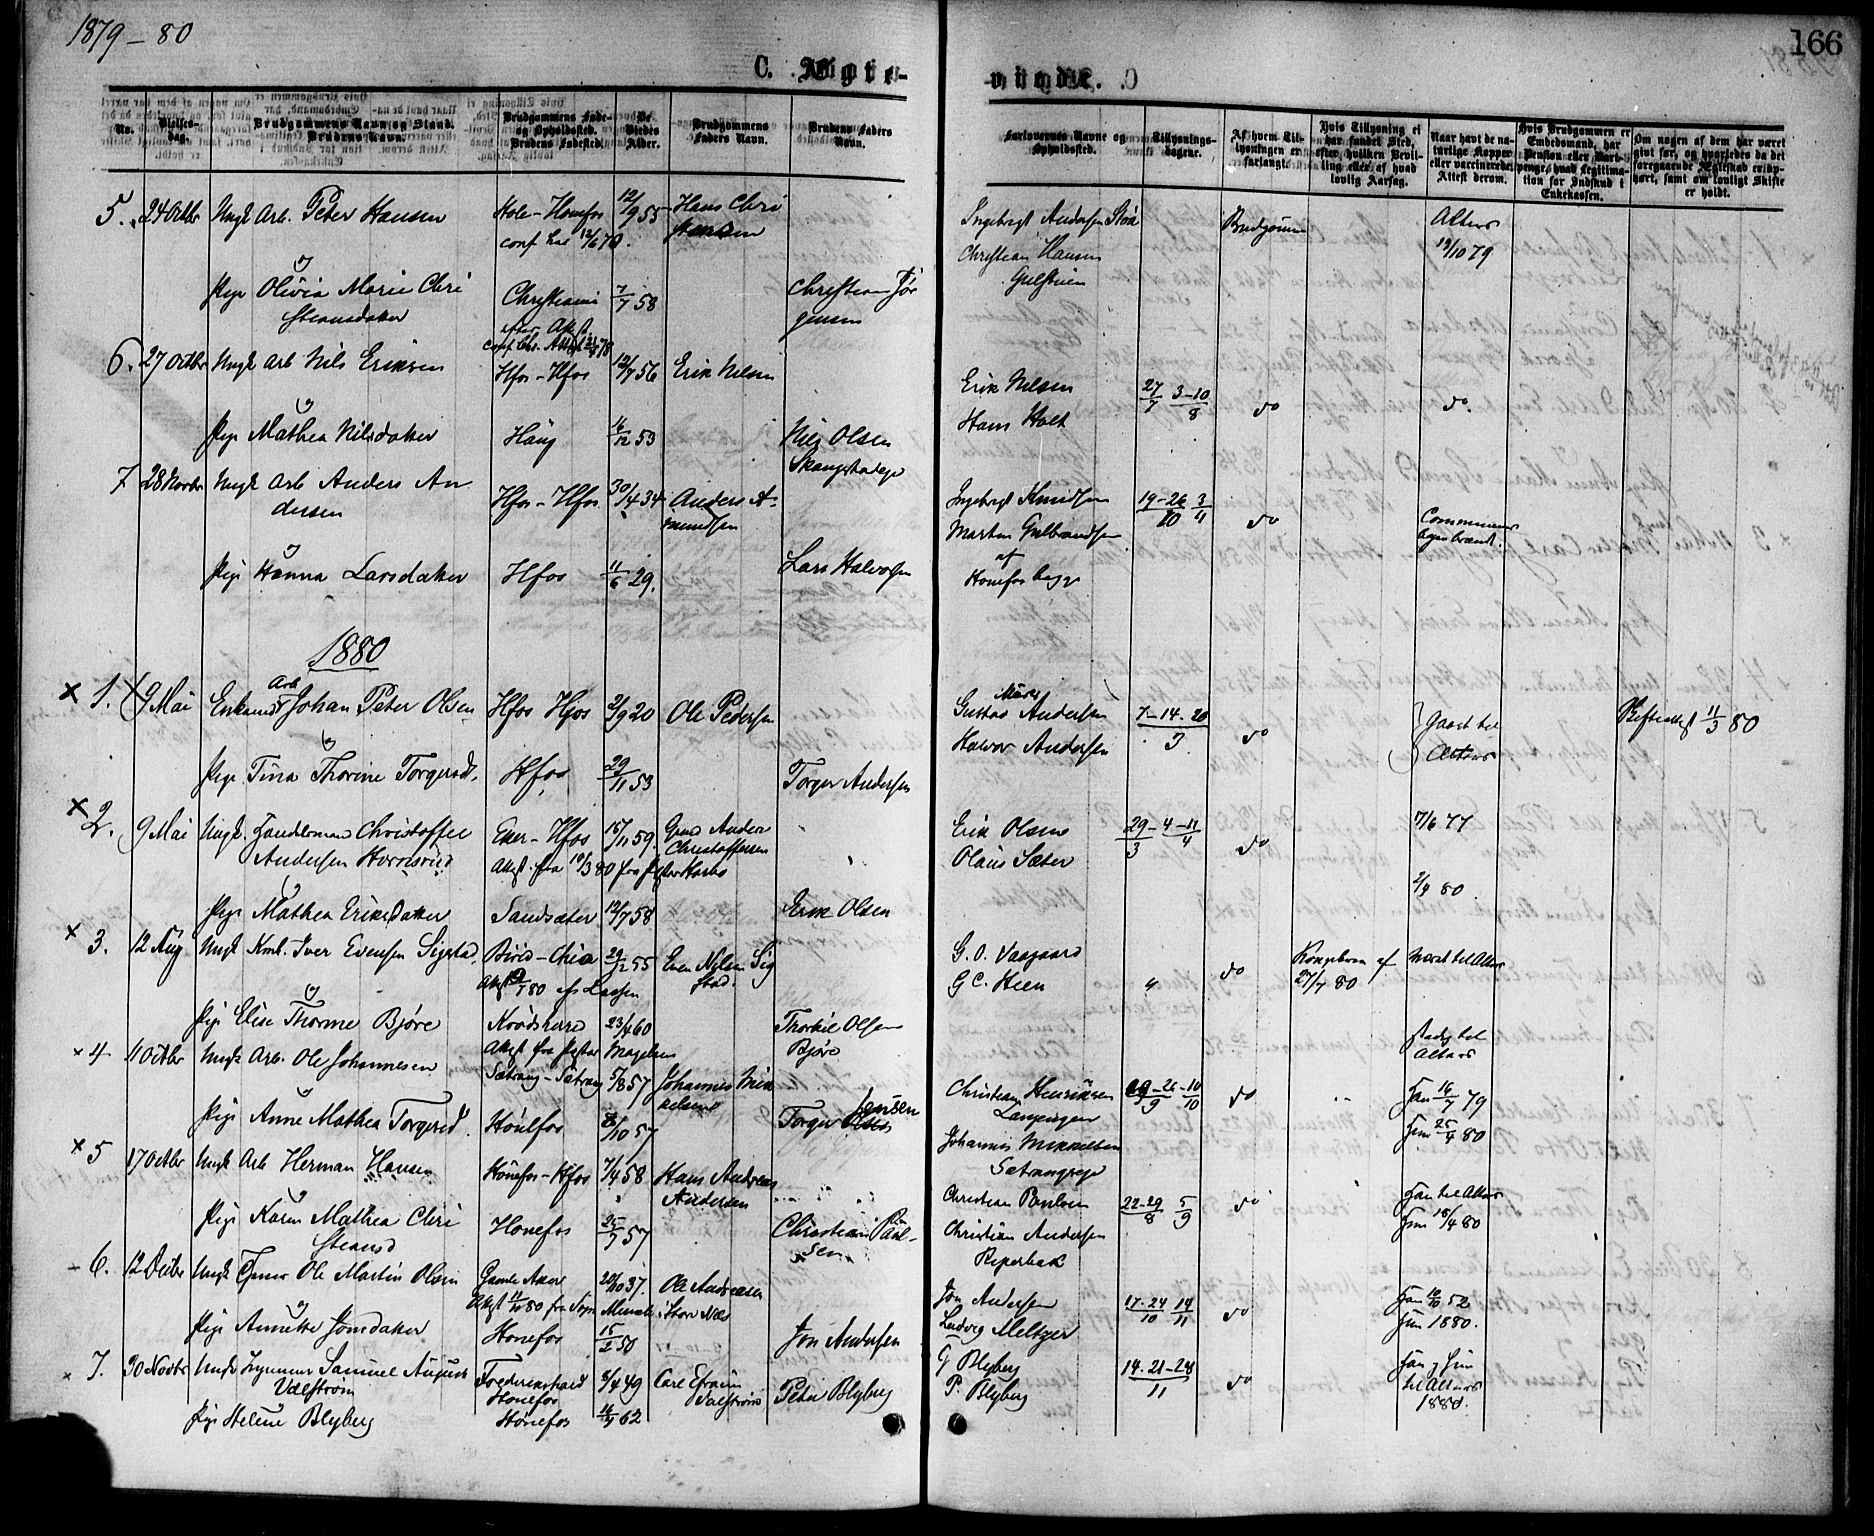 1879-80
166
C. Ægte-
viede. C
No.
Vielses-
dag.
Brudgommens Navn og Stand.
Brudens Navn.
Brudgommens Føde-
og Opholdssted.
Brudens Fødested.
De
Viedes
Alder.
Brudgommens
Faders Navn.
Brudens Faders
Navn.
Forlovernes Navne og
Opholdssted.
Tillysnings-
dagene.
Af hvem Til-
lysningen er
forlangt.
Hvis Tillysning ei
har fundet Sted,
efter hvilken Bevil-
ling eller af hvad
lovlig Aarsag.
Naar havt de na-
turlige Kopper
eller vaccinerede.
Attest derom.
Hvis Brudgommen er
Embedsmand, har
Pension eller Vart-
penge, hvad Legitima-
tion for Indskud i
Enkekassen.
Om nogen af dem har været
gift før, og hvorledes da det
foregaaende Ægteskab er op-
hørt, samt om lovligt Skifte
er holdt.
5. 24 Octbr Ungk Arb. Peter Hansen Hole-Hønefos 12/9 55 Hans Chri
stensen
conf. Hole 12/6 70.
Ingebregt Andersen Stoa Brudgommen Alters
19/10 79
Christian Hansen
Gulstuen
Pige Olivia Marie Chri
stiansdatter
Christiania 7/7 58 Christian Jör
gensen
efter Attest
6. 27 Octbr Ungk Arb Nils Eriksen Hfos-Hfos 12/7 56 Erik Nilsen
Erik Nilsen 27/7 3-10/8 do do.
Hans Holt
Pige Mathea Nilsdatter Haug 16/12 53 Nils Olsen
7 28 Novbr Ungk Arb Anders An
dersen
Hfos-Hfos 30/4 34 Anders A-
mundsen
Ingebregt Knudsen 19-26/10 3/11 do
Martin Gulbrandsen
af
Hønefos bygge
Pige Hanna Larsdatter Hfos 11/6 29. Lars Halvorsen
1880
x 1. 9 Mai Enkemd Arb Johan Peter Olsen Hfos Hfos 2/9 20 Ole Pedersen
Murer
Gustav Andersen 7-14-20/3 do Gaaet til
Alters
Skifteattest 11/3 80
Halvor Andersen
Pige Tina Thorine Torgersd. Hfos 29/11 53 Torger Andersen
x 2. 9 Mai Ungk. Handelsmand Christoffer
Andersen Hornsrud
Eker-Hfos 15/11 59 Gmd Anders
Christoffersen
Attest fra 19/3 80 fra
Erik Olsen 29/3-4-11/4 do 17/6 77
Olaus Sæter
2/4 80
Pige Mathea Eriksdatter Sandsæter 12/7 58 Erik Olsen
x 3. 12 Aug Ungk Kml. Iver Evensen Sigstad Biri-Chria 29/12 55 Even Nilsen Sig
stad.
G. O. Vaagaard
G C. Heen " do Kongebrev af
27/7 80
været til Alters
Pige Elise Thorine Bjøre Krødsherred 23/4 60 Thorkil Olsen
Bjøre
x 4 11 Octbr Ungk Arb. Ole Johannesen Sætrang-Sætrang 5/8 57 Johannes Mik
kelsen
Christian Henriksen 19-26/9-10/10 do Han 16/7 79
Hun 25/4 80
Johannes Mikkelsen
Sætrangeje
Pige Anne Mathea Torgersd. Hønefos 10 57 Torger Jensen
x 5 17 Octbr Ungk Arb Herman Hansen Hønefos-Hfos 7/4 58 Hans Andreas
Andersen
Christian Paulsen 22-29/8 5/9 do Han til Alters
Hun 18/4 80
Christian Andersen
Pige Karen Mathea Chri
stiansd
Hønefos 25/7 57 Christian Paul-
sen
6. 12 Decbr Ungk Ole Martin Olsen Gamle Aker 20/10 37. Ole Andreasen
Jon Andersen 17-24/10 14/11 do Han 10/10 52
Hun 1880.
Ludvig Meltzer
Pige Annette Jonsdatter Hønefos 15/2 50 Jon Andersen
x 7. 30 Novbr Ungk Ingeniør Samuel August
Valstrøm
Frederikshald
Hønefos 8/4 49 Carl Efraim
Valstrøm
G Blyberg 14-21-28/11 do Han & Hun
til Alters
1880.
P. Blyberg
Pige Helene Blyberg Hønefos 16/9 62 Peter Blyberg